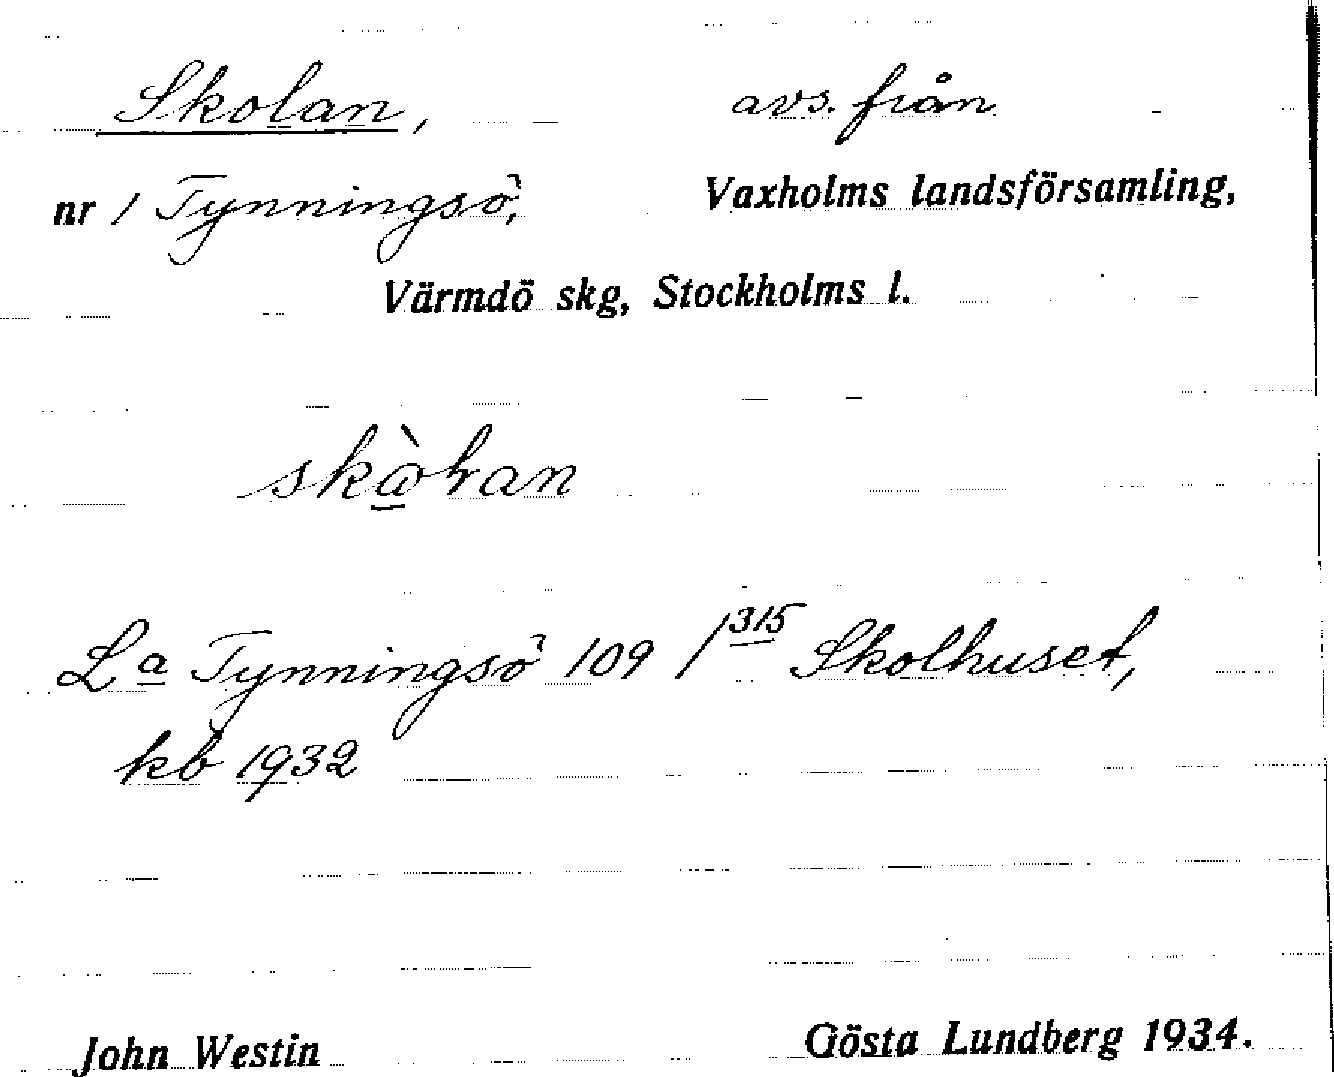 Skolan, avs. från
nr 1 Tynningsö, Vaxholms landsförsamling,
Värmdö skg, Stockholms l.
La Tynningsö 109 / 315 Skolhuset,
kb 1932
John Westin Gösta Lundberg 1934.